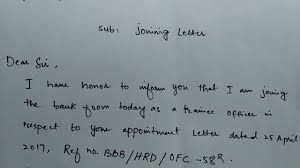 Sub: Joining Letter
Dear Sir,
I have honor to inform you that I am joing
the bank from today as a trainee officer in
respect to your appointment Letter dated 25 April
2017, Ref no. BDB/HRD/OFC-58R.